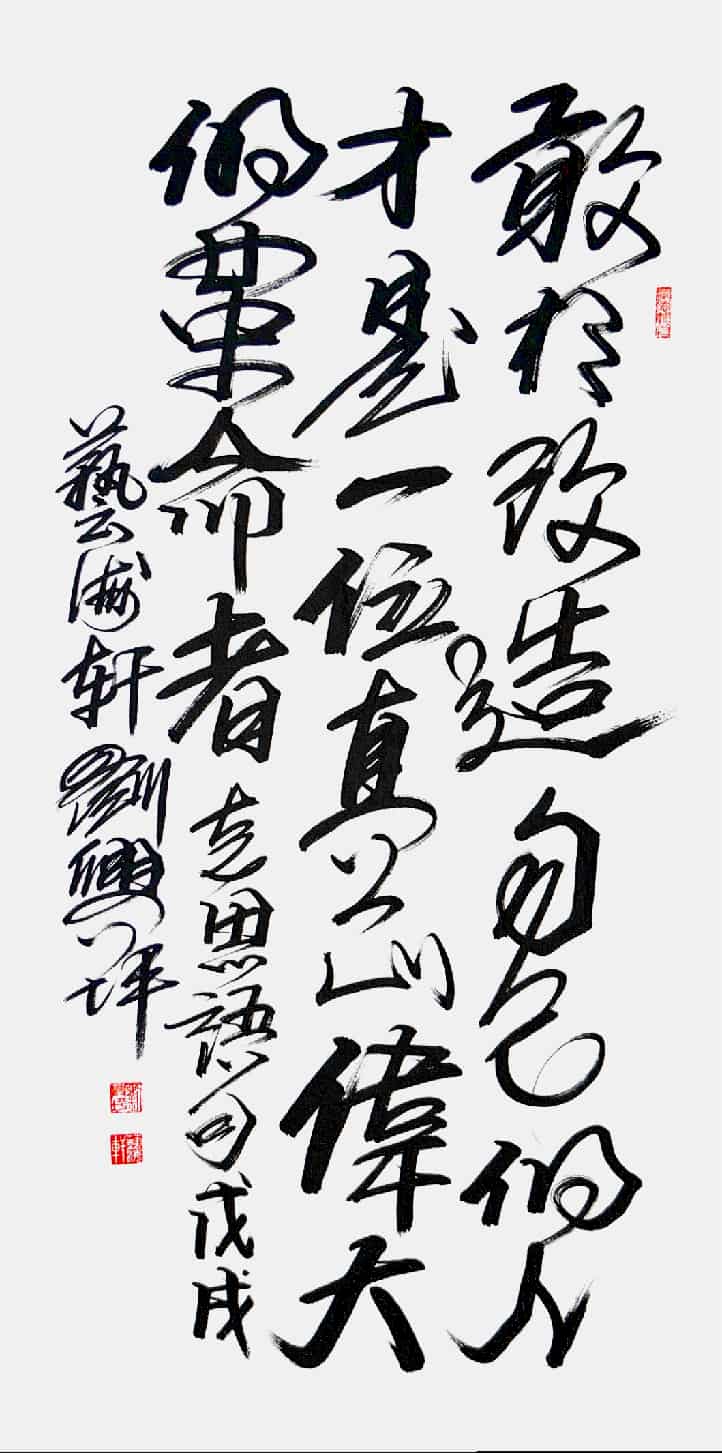 敢於改造自己的人
才是一位真正偉大
的革命者 克思語句 戊戌
藝海軒劉興坪